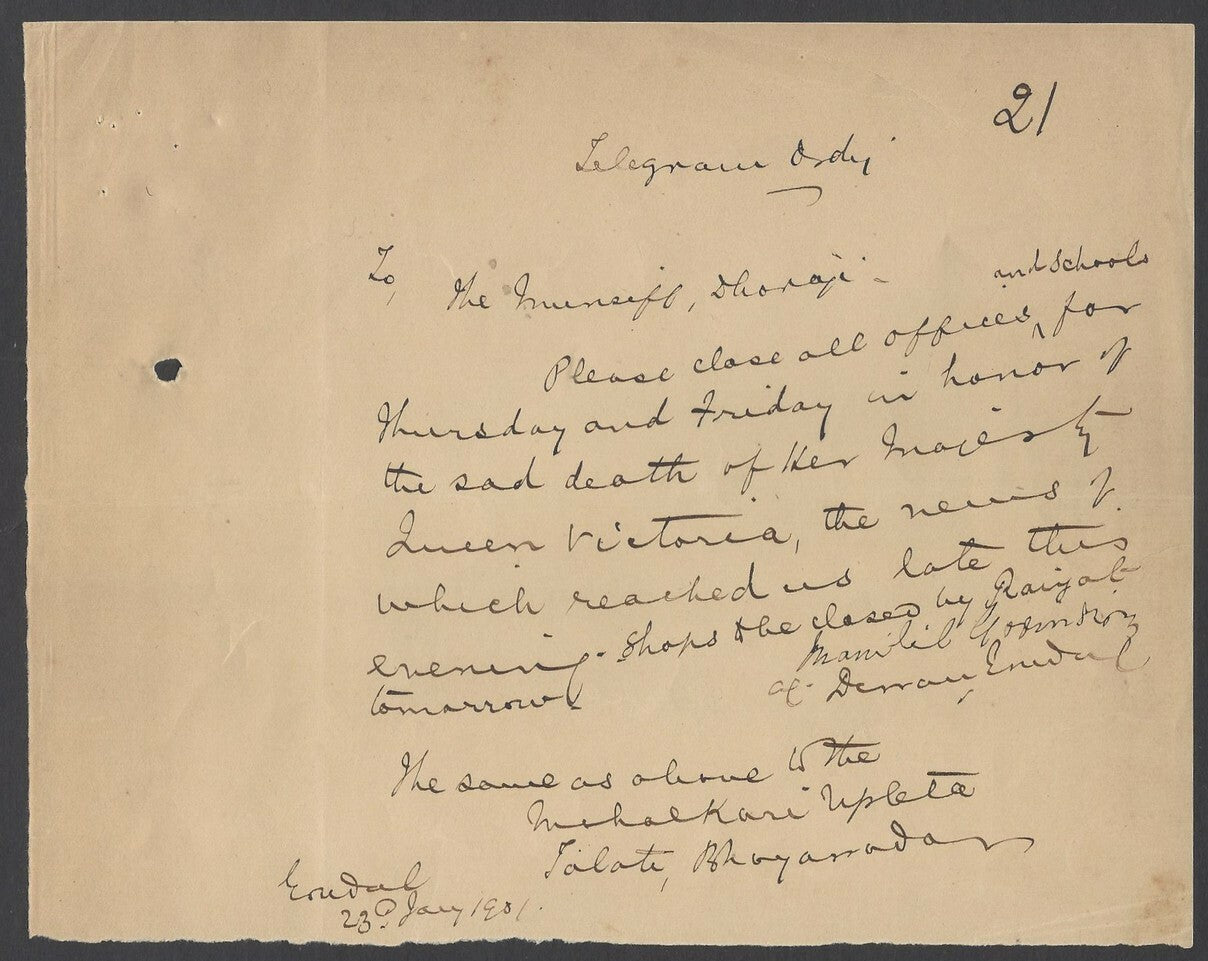 21
Telegram Ordy
To,
The Munsiff, Dhoraji -
and schools
Please close all offices ^ for
Thursday and Friday in honor of
the sad death of Her Majesty
Queen Victoria, the news of
which reached us late this
evening. Shops to be closed by Raiyat
tomorrow.
ag. Dewan, Gondal
The same as above to the
Mahalkari Upleta
Talati, Bhayavadar
Gondal
23rd Jany 1901.